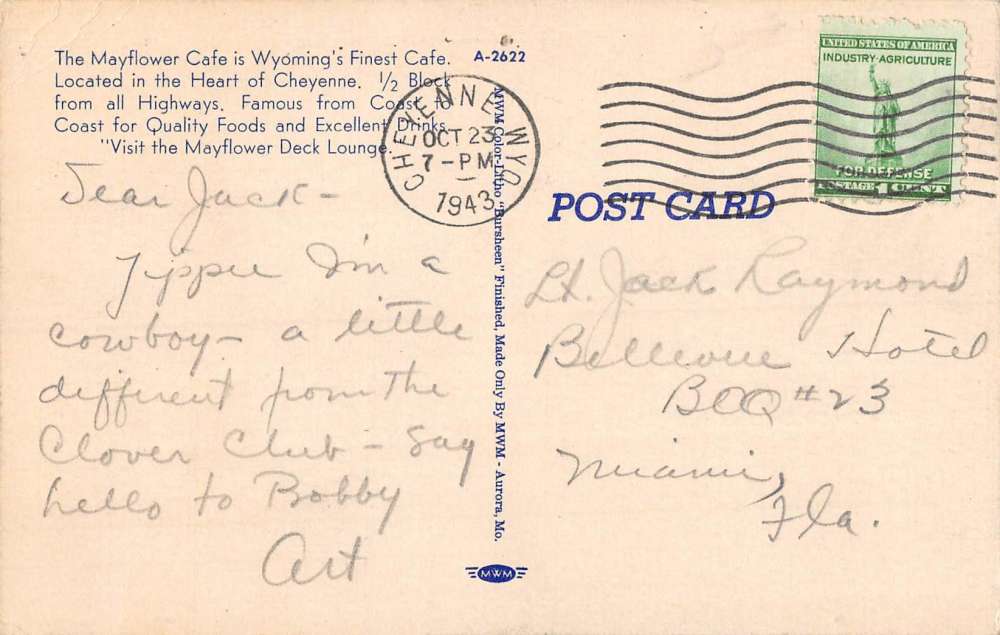 The Mayflower Cafe is Wyoming's Finest Cafe.
Located in the Heart of Cheyenne. 1/2 Block
from all Highways. Famous from Coast to
Coast for Quality Foods and Excellent Drinks.
"Visit the Mayflower Deck Lounge.
A-2622
CHEYENNE WYO
OCT 23
7-PM
1943
UNITED STATES OF AMERICA
INDUSTRY·AGRICULTURE
FOR DEFENSE
POSTAGE 1 CENT
POST CARD
Dear Jack -
Yippee I'm a
cowboy - a little
different from the
Clover Club - Say
hello to Bobby
Art
MWM Color-Litho "Bursheen" Finished, Made Only By MWM - Aurora, Mo.
MWM
Lt. Jack Raymond
Bellevue Hotel
BOQ #23
Miami,
Fla.